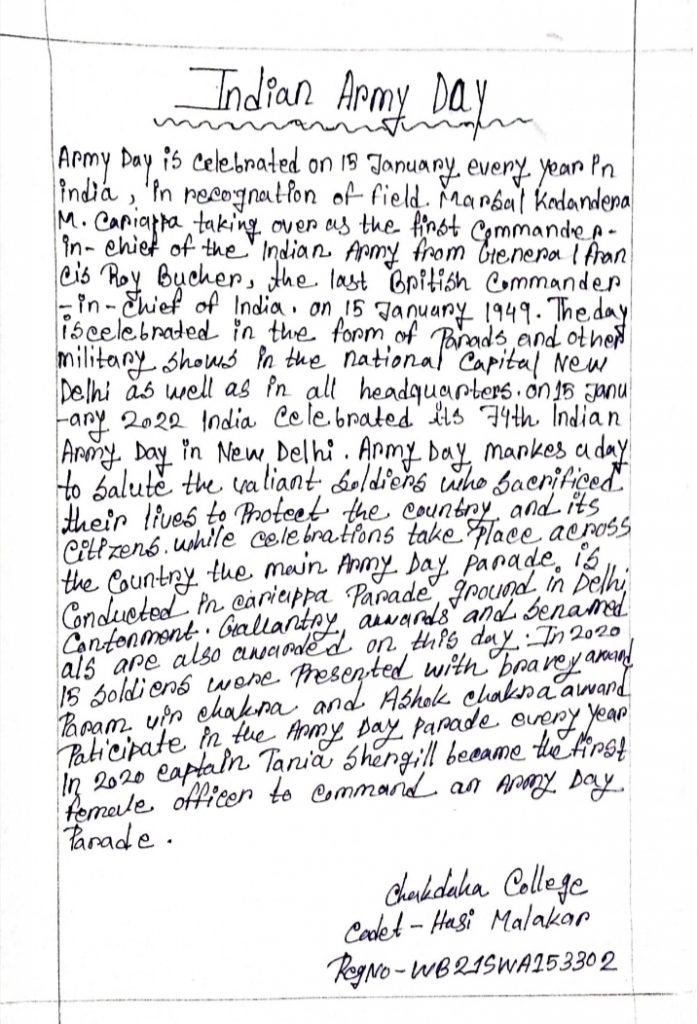 Indian Army Day
Army Day is celebrated on 15 January every year in
india, in recognation of field. Marsal Kodandera
M. Cariappa taking over as the first Commander-
in-chief of the Indian Army from General Fran
cis Roy Bucher, the last British Commander
-in-chief of India. on 15 January 1949. The day
is celebrated in the form of Parads and other
military shows in the national Capital New
Delhi as well as in all headquarters. on 15 Janu
-ary 2022 India Celebrated its 74th Indian
Army Day in New Delhi. Army Day markes a day
to salute the valiant soldiers who sacrificed
their lives to Protect the country and its
citizens. while celebrations take place across
the Country the main Army Day parade is
Conducted in cariappa Parade ground in Delhi
Cantonment. Gallantry awards and senamed
als are also awarded on this day. In 2020
15 soldiers were Presented with bravey award
Param vir chakra and Ashok chakra award
Paticipate in the Army Day parade every year
In 2020 captain Tania Shergill became the first
female officer to command an Army Day
Parade.
Chakdaha College
Cadet - Hasi Malakar
Reg No - WB21SWA153302